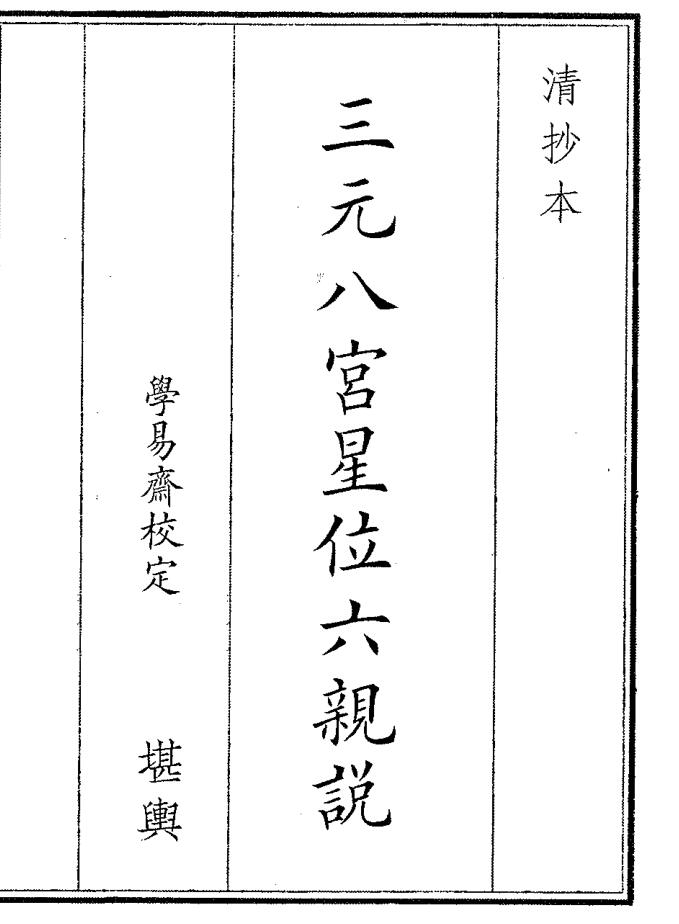 清抄本
三元八宮星位六親説
學易齋校定 堪輿